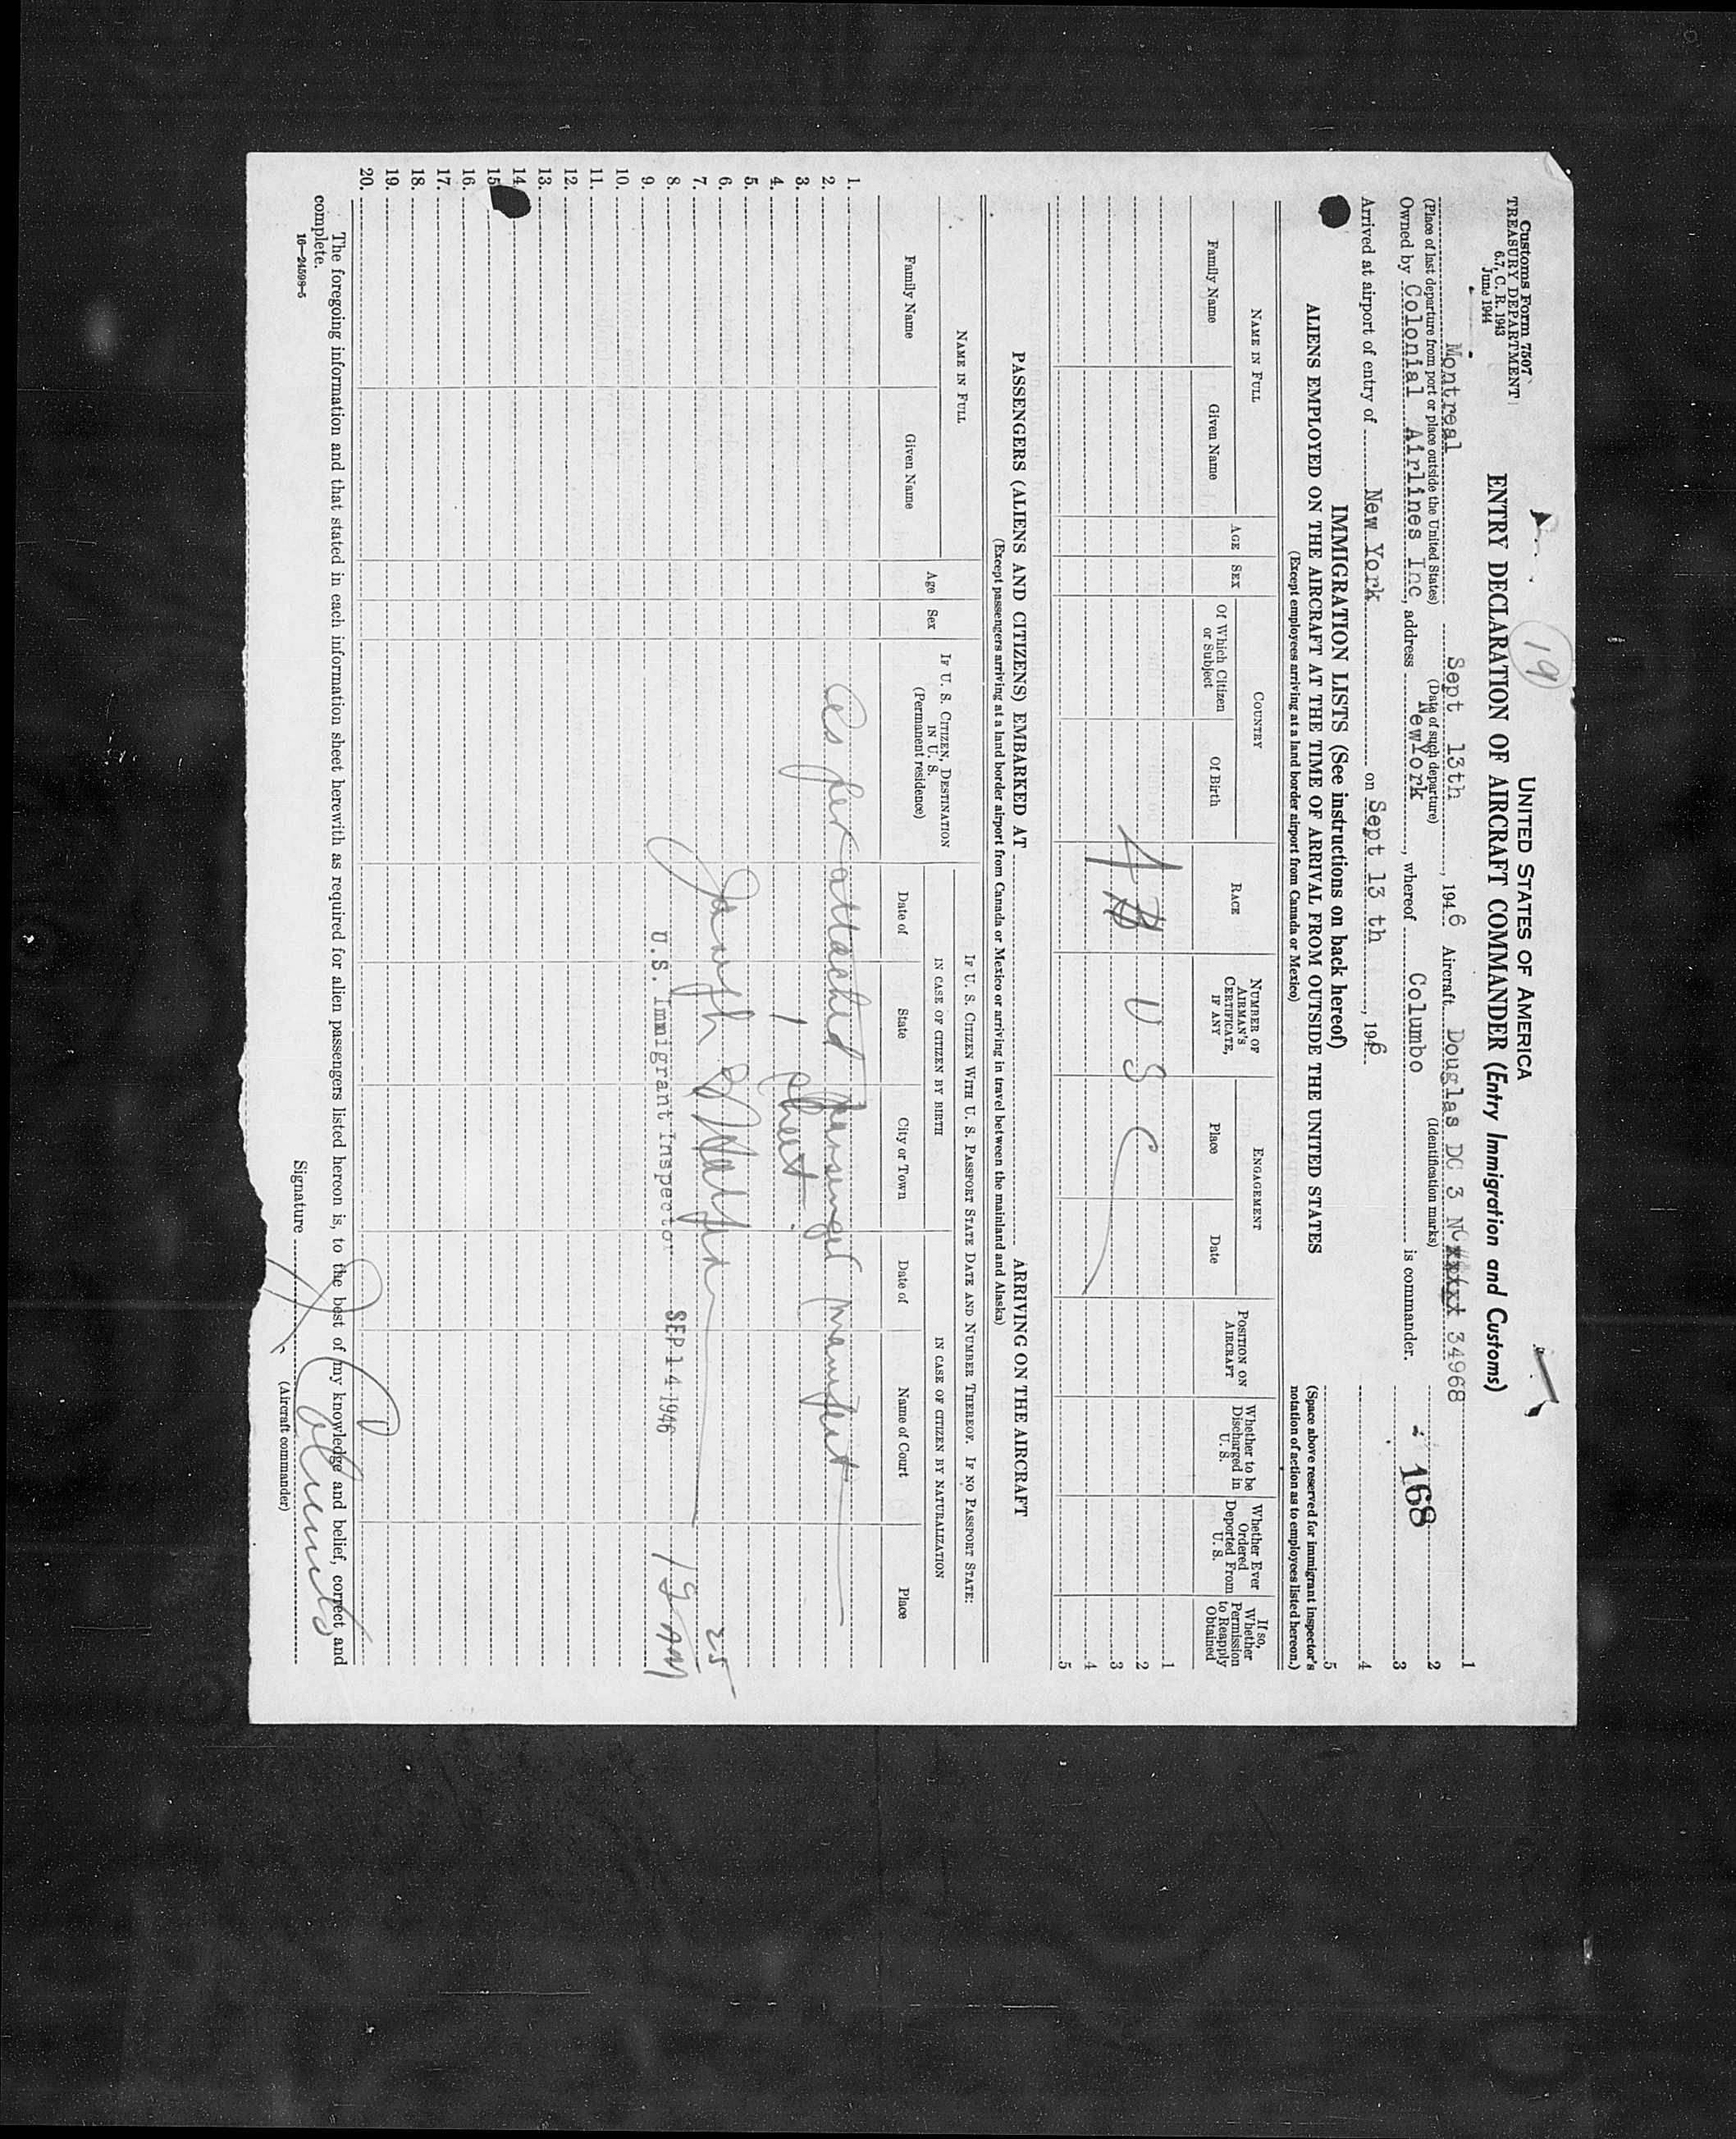 Customs Form 7507
TREASURY DEPARTMENT
6.7, C. R. 1943
June 1944
19
UNITED STATES OF AMERICA
ENTRY DECLARATION OF AIRCRAFT COMMANDER (Entry Immigration and Customs)
Montreal Sept 13th, 1946 Aircraft Douglas DC 3 NC 34968
(Place of last departure from port or place outside the United States) (Date of such departure) (Identification marks)
Owned by Colonial Airlines Inc, address NewYork, whereof Columbo is commander.
Arrived at airport of entry of New York on Sept 13 th, 1946
1
2
168
3
4
5
(Space above reserved for immigrant inspector's notation of action as to employees listed hereon.)
IMMIGRATION LISTS (See instructions on back hereof)
ALIENS EMPLOYED ON THE AIRCRAFT AT THE TIME OF ARRIVAL FROM OUTSIDE THE UNITED STATES
(Except employees arriving at a land border airport from Canada or Mexico)
NAME IN FULL
Family Name
Given Name
AGE
SEX
COUNTRY
Of Which Citizen or Subject
Of Birth
RACE
NUMBER OF AIRMAN'S CERTIFICATE, IF ANY
ENGAGEMENT
Place
Date
POSITION ON AIRCRAFT
Whether to be Discharged in U. S.
Whether Ever Ordered Deported From U. S.
If so, Whether Permission to Reapply Obtained
1
2
3
4
5
U S C
PASSENGERS (ALIENS AND CITIZENS) EMBARKED AT ARRIVING ON THE AIRCRAFT
(Except passengers arriving at a land border airport from Canada or Mexico or arriving in travel between the mainland and Alaska)
NAME IN FULL
Family Name
Given Name
Age
Sex
IF U. S. CITIZEN, DESTINATION IN U. S.
(Permanent residence)
IF U. S. CITIZEN WITH U. S. PASSPORT STATE DATE AND NUMBER THEREOF. IF NO PASSPORT STATE:
IN CASE OF CITIZEN BY BIRTH
Date of
State
City or Town
IN CASE OF CITIZEN BY NATURALIZATION
Date of
Name of Court
Place
1.
2. As per attached passenger manifest
3.
4. 1 sheet.
5.
6.
7. 25
8. U.S. Immigrant Inspector SEP 14 1946
9.
10.
11.
12.
13.
14.
15.
16.
17.
18.
19.
20.
The foregoing information and that stated in each information sheet herewith as required for alien passengers listed hereon is, to the best of my knowledge and belief, correct and
complete.
16—24598-5
Signature
(Aircraft commander)